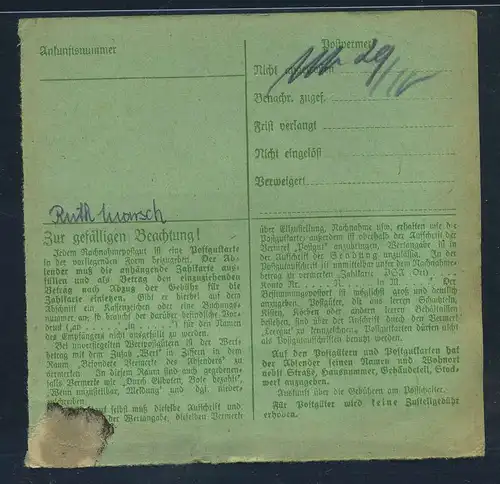 Ankunftsnummer
Postvermerk
Nicht
29/IV
Benachr. zugef.
Frist verlangt
Nicht eingelöst
Verweigert
Ruth
Zur gefälligen Beachtung!
Jedem Nachnahmepostgut ist eine Postgutkarte
in der vorliegenden Form beizugeben. Der Ab-
sender muß die anhängende Zahlkarte aus-
füllen und als Betrag den einzuziehenden
Betrag nach Abzug der Gebühr für die
Zahlkarte einsetzen. Gibt er hierbei auf dem
Abschnitt ein Kassenzeichen oder eine Buchungs-
nummer an, so braucht der darüber befindliche Vor-
druck (an in ) für den Namen
des Empfängers nicht ausgefüllt zu werden.
Bei unversiegelten Wertpostgütern ist der Wert-
betrag mit dem Zusatz „Wert" in Ziffern in dem
Raum „Besondere Vermerke des Absenders" zu
wiederholen. In diesem Raum sind auch gegebenen-
falls Vermerke wie „Durch Eilboten, Bote bezahlt",
„Wenn unzustellbar, Meldung" und dgl. nieder-
schreiben.
selbst muß dieselbe Aufschrift und
dieselben Vermerke
über Eilzustellung, Nachnahme usw. erhalten wie die
Postgutkarte; außerdem ist oberhalb der Aufschrift der
Vermerk „Postgut" anzubringen. Wertangabe ist in
der Aufschrift der Sendung unzulässig. In der
Postgutaufschrift ist unmittelbar unter dem Nachnahme-
betrag zu vermerken (Zahlkarte PSA Ort)
Konto Nr. N. in M. Der
Bestimmungspostort ist möglichst groß und deutlich
anzugeben. Postgüter, die aus leeren Schachteln,
Kisten, Körben oder andern leeren Behältnissen
bestehen, sind über der Anschrift durch den Vermerk
„Leergut" zu kennzeichnen. Postgutkarten dürfen nicht
als Postgutaufschriften benutzt werden.
Auf den Postgütern und Postgutkarten hat
der Absender seinen Namen und Wohnort
nebst Straße, Hausnummer, Gebäudeteil, Stock-
werk anzugeben.
Auskunft über die Gebühren am Postschalter.
Für Postgüter wird keine Zustellgebühr
erhoben.